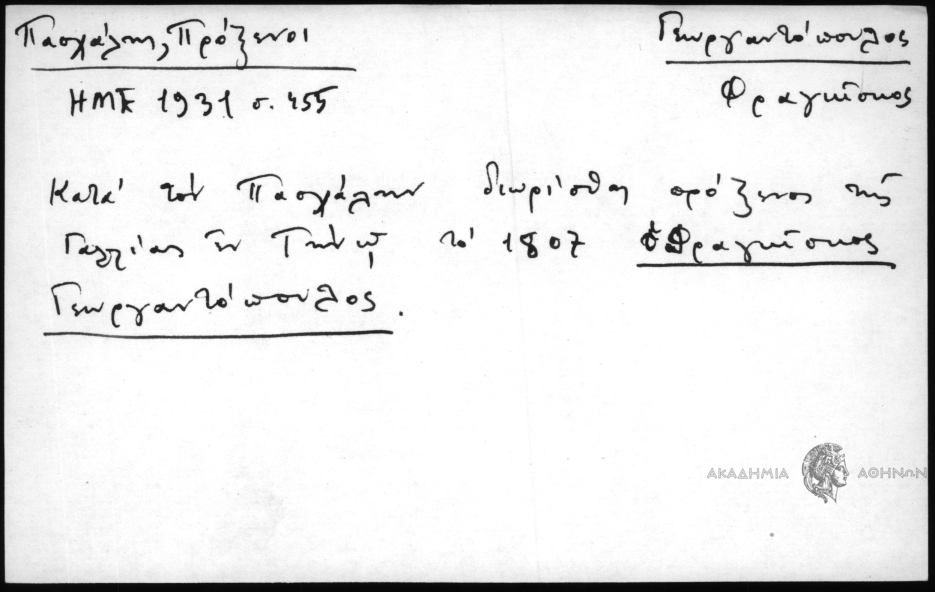 Πασχάλης, Πρόξενοι
Γεωργαντόπουλος
ΗΜΕ 1931 σ. 455
Φραγκῖσκος
Κατά τόν Πασχάλην διωρίσθη πρόξενος τῆς
Γαλλίας ἐν Τήνῳ τό 1807 ὁ Φραγκῖσκος
Γεωργαντόπουλος.
ΑΚΑΔΗΜΙΑ ΑΘΗΝΩΝ